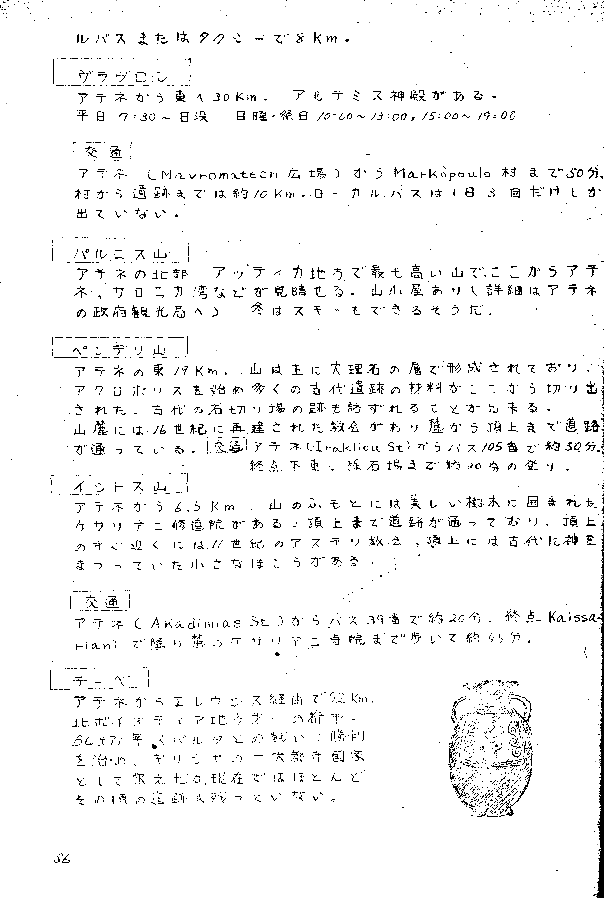 ルバスまたはタクシーで8Km.
ヴラヴロン
アテネから東へ30Km. アルテミス神殿がある.
平日 7:30～日没 日曜・祭日 10:00～13:00, 15:00～19:00
交通
アテネ (Mavromateon 広場) から Markópoulo 村まで50分.
村から遺跡までは約10Km.ローカルバスは1日3回だけしか
出ていない.
パルニス山
アテネの北部 アッティカ地方で最も高い山でここからアテ
ネ、サロニカ湾などが見晴せる. 山小屋あり(詳細はアテネ
の政府観光局へ) 冬はスキーもできるそうだ.
ペンデリ山
アテネの東19Km. 山は主に大理石の層で形成されており、
アクロポリスを始め多くの古代遺跡の材料がここから切り出
された. 古代の石切り場の跡を訪ずれることが出来る.
山麓には16世紀に再建された教会があり麓から頂上まで道路
が通っている. 交通 アテネ(Irakliou St)からバス105番で約30分.
終点下車、採石場まで約 分の登り.
イミトス山
アテネから6.5Km. 山のふもとには美しい樹木に囲まれた
ケサリアニ修道院がある. 頂上まで道路が通っており、頂上
のすぐ近くには11世紀のアステリ教会、頂上には古代に神を
まつっていた小さなほこらがある.
交通
アテネ (Akadimias St) からバス39番で約20分. 終点 Kaissa-
riani で降り 寺院まで歩いて約45分.
テーベ
アテネからエレウシス経由で Km.
北ボイオティア地方 の都市.
との戦いに勝利
を治め、ギリシャの一大都市国家
として栄えたが現在ではほとんど
その頃の遺跡は残っていない.
86